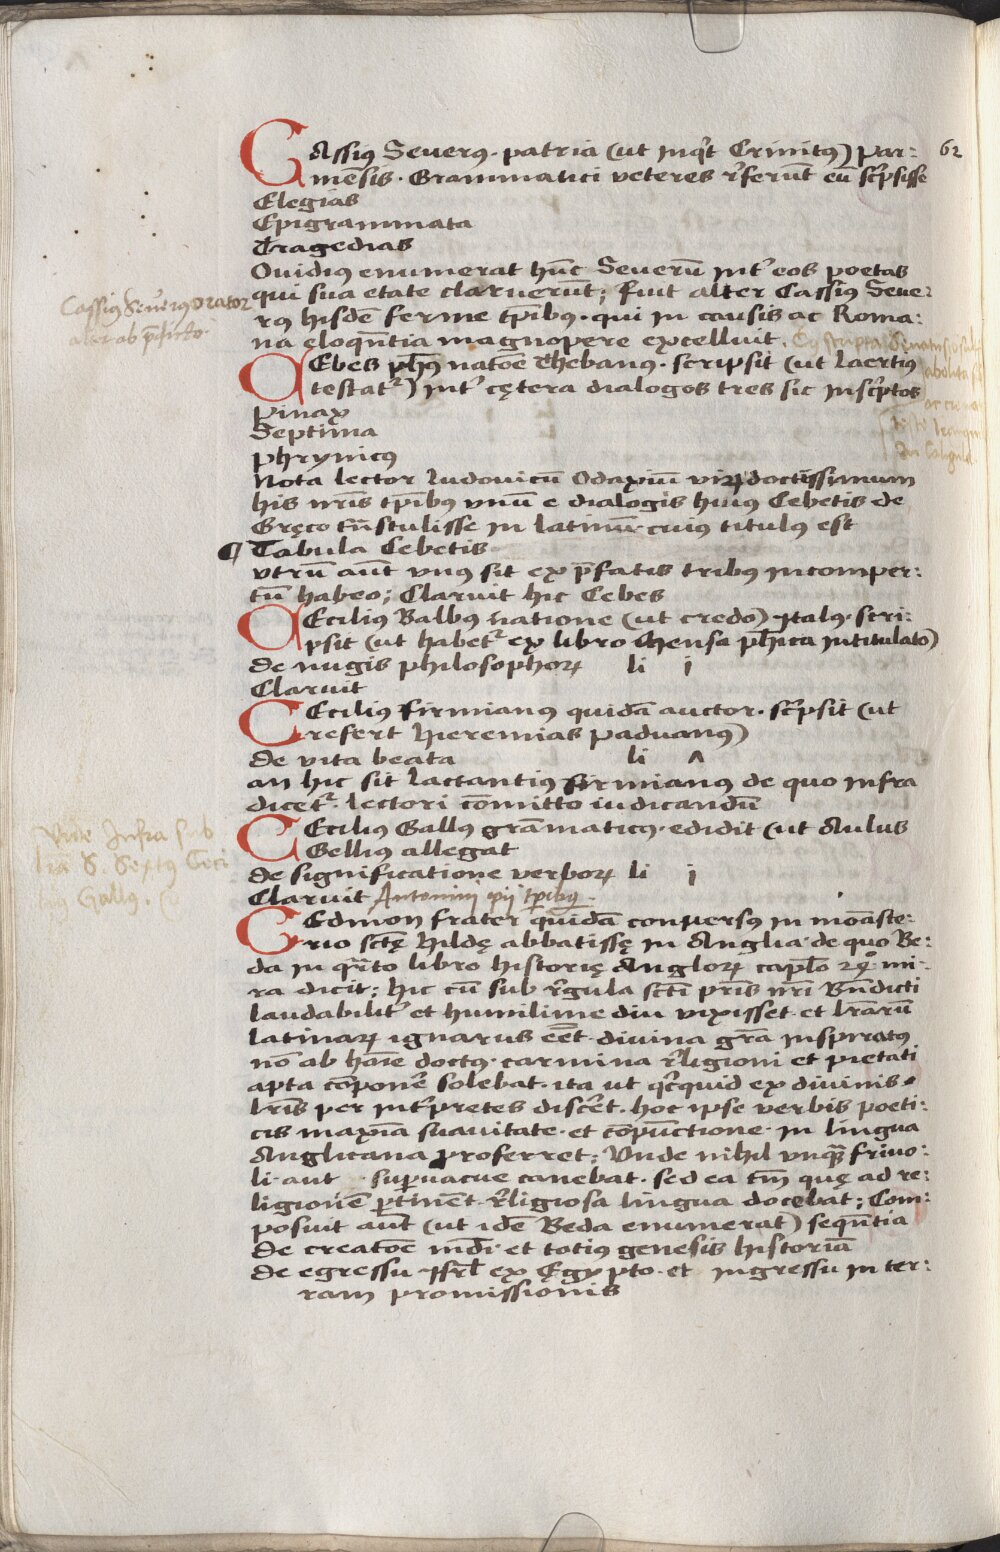 CAssiꝰ Seuerꝰ · patria (ut inqͥt Crinitꝰ) Par:
mēsis · Grammatici veteres rͤferūt eū scͥpsisse
Elegias
Epigrammata
Tragedias
Ouidiꝰ enumerat hūc Seuerū intͤ eos poetas
qui sua etate claruerūt; fuit alter Cassiꝰ Seue:
rꝰ hisdē ferme tp̄ibꝰ · qui in causis ac Roma:
na eloqn̄tia magnopere excelluit.
Cassiꝰ Seuerꝰ orator
alter ab p̄dicto
62
CEbes ph̄ꝰ natōe Thebanꝰ · scripsit (ut Laertiꝰ
testatᷣ) intͤ cętera dialogos tres sic inscͥptos
Pinax
Septima
Phrynicꝰ
Nota lector Ludouicū Odaxiū virū doctissimum
his nr̄is tp̄ibꝰ vnū e dialogis huiꝰ Cebetis de
Gręco trāstulisse in latinū · cuiꝰ titulꝰ est
¶ Tabula Cebetis
vtrū aūt vnꝰ sit ex p̄fatis tribꝰ incomper:
tū habeo; Claruit hic Cebes
CEcilius Balbꝰ natione (ut credo) Italꝰ · scri:
psit (ut habetᷣ ex libro Mensa ph̄ica intitulato)
de nugis philosophoꝝ li i
Claruit
CEcilius Firmianꝰ quidā auctor · scͥpsit (ut
refert Hieremias paduanꝰ)
de vita beata li ʌ
an hic sit Lactantiꝰ firmianꝰ de quo infra
dicetᷣ · lectori cōmitto iudicandū
CEcilius Gallꝰ grāmaticꝰ · edidit (ut Aulus
Gellius allegat
de significatione verboꝝ li i
Claruit Antonini pij tp̄ibꝰ ·
Vide Infra sub
lrā S. Sextꝰ Ceci
liꝰ Gallꝰ.
CEdmon frater quidā conuersꝰ in monāste:
rio sctę Hildę abbatissę in Anglia · de quo Be:
da in qͣrto libro historię Angloꝝ capl̄o 24° mi:
ra dicit; hic cū sub rͤgula scti pr̄is nr̄i Bn̄dicti
laudabilitͤ et humilime diu vixisset · et lr̄arū
latinaꝝ ignarus eēt · diuina grā inspiratꝰ
nō ab hoīe doctꝰ · carmina rͤligioni et pietati
apta cōponeͤ solebat · ita ut qͥcquid ex diuinis
lr̄is per intͤpretes discēt · hoc ipse verbis poeti:
cis maxīa suauitate · et cōpūctione · in lingua
Anglicana proferret; Vnde nihil vnqͣ̄ friuo:
li · aut suꝑuacue canebat · sed ea tm̄ quę ad re:
ligionē ꝑtinēt · rͤligiosa lingua docebat; Com:
posuit aūt (ut idē Beda enumerat) seqn̄tia
de creatōe mūdi · et totiꝰ genesis historiā
de egressu Isrl̄ ex Ęgypto · et ingressu in ter:
ram promissionis